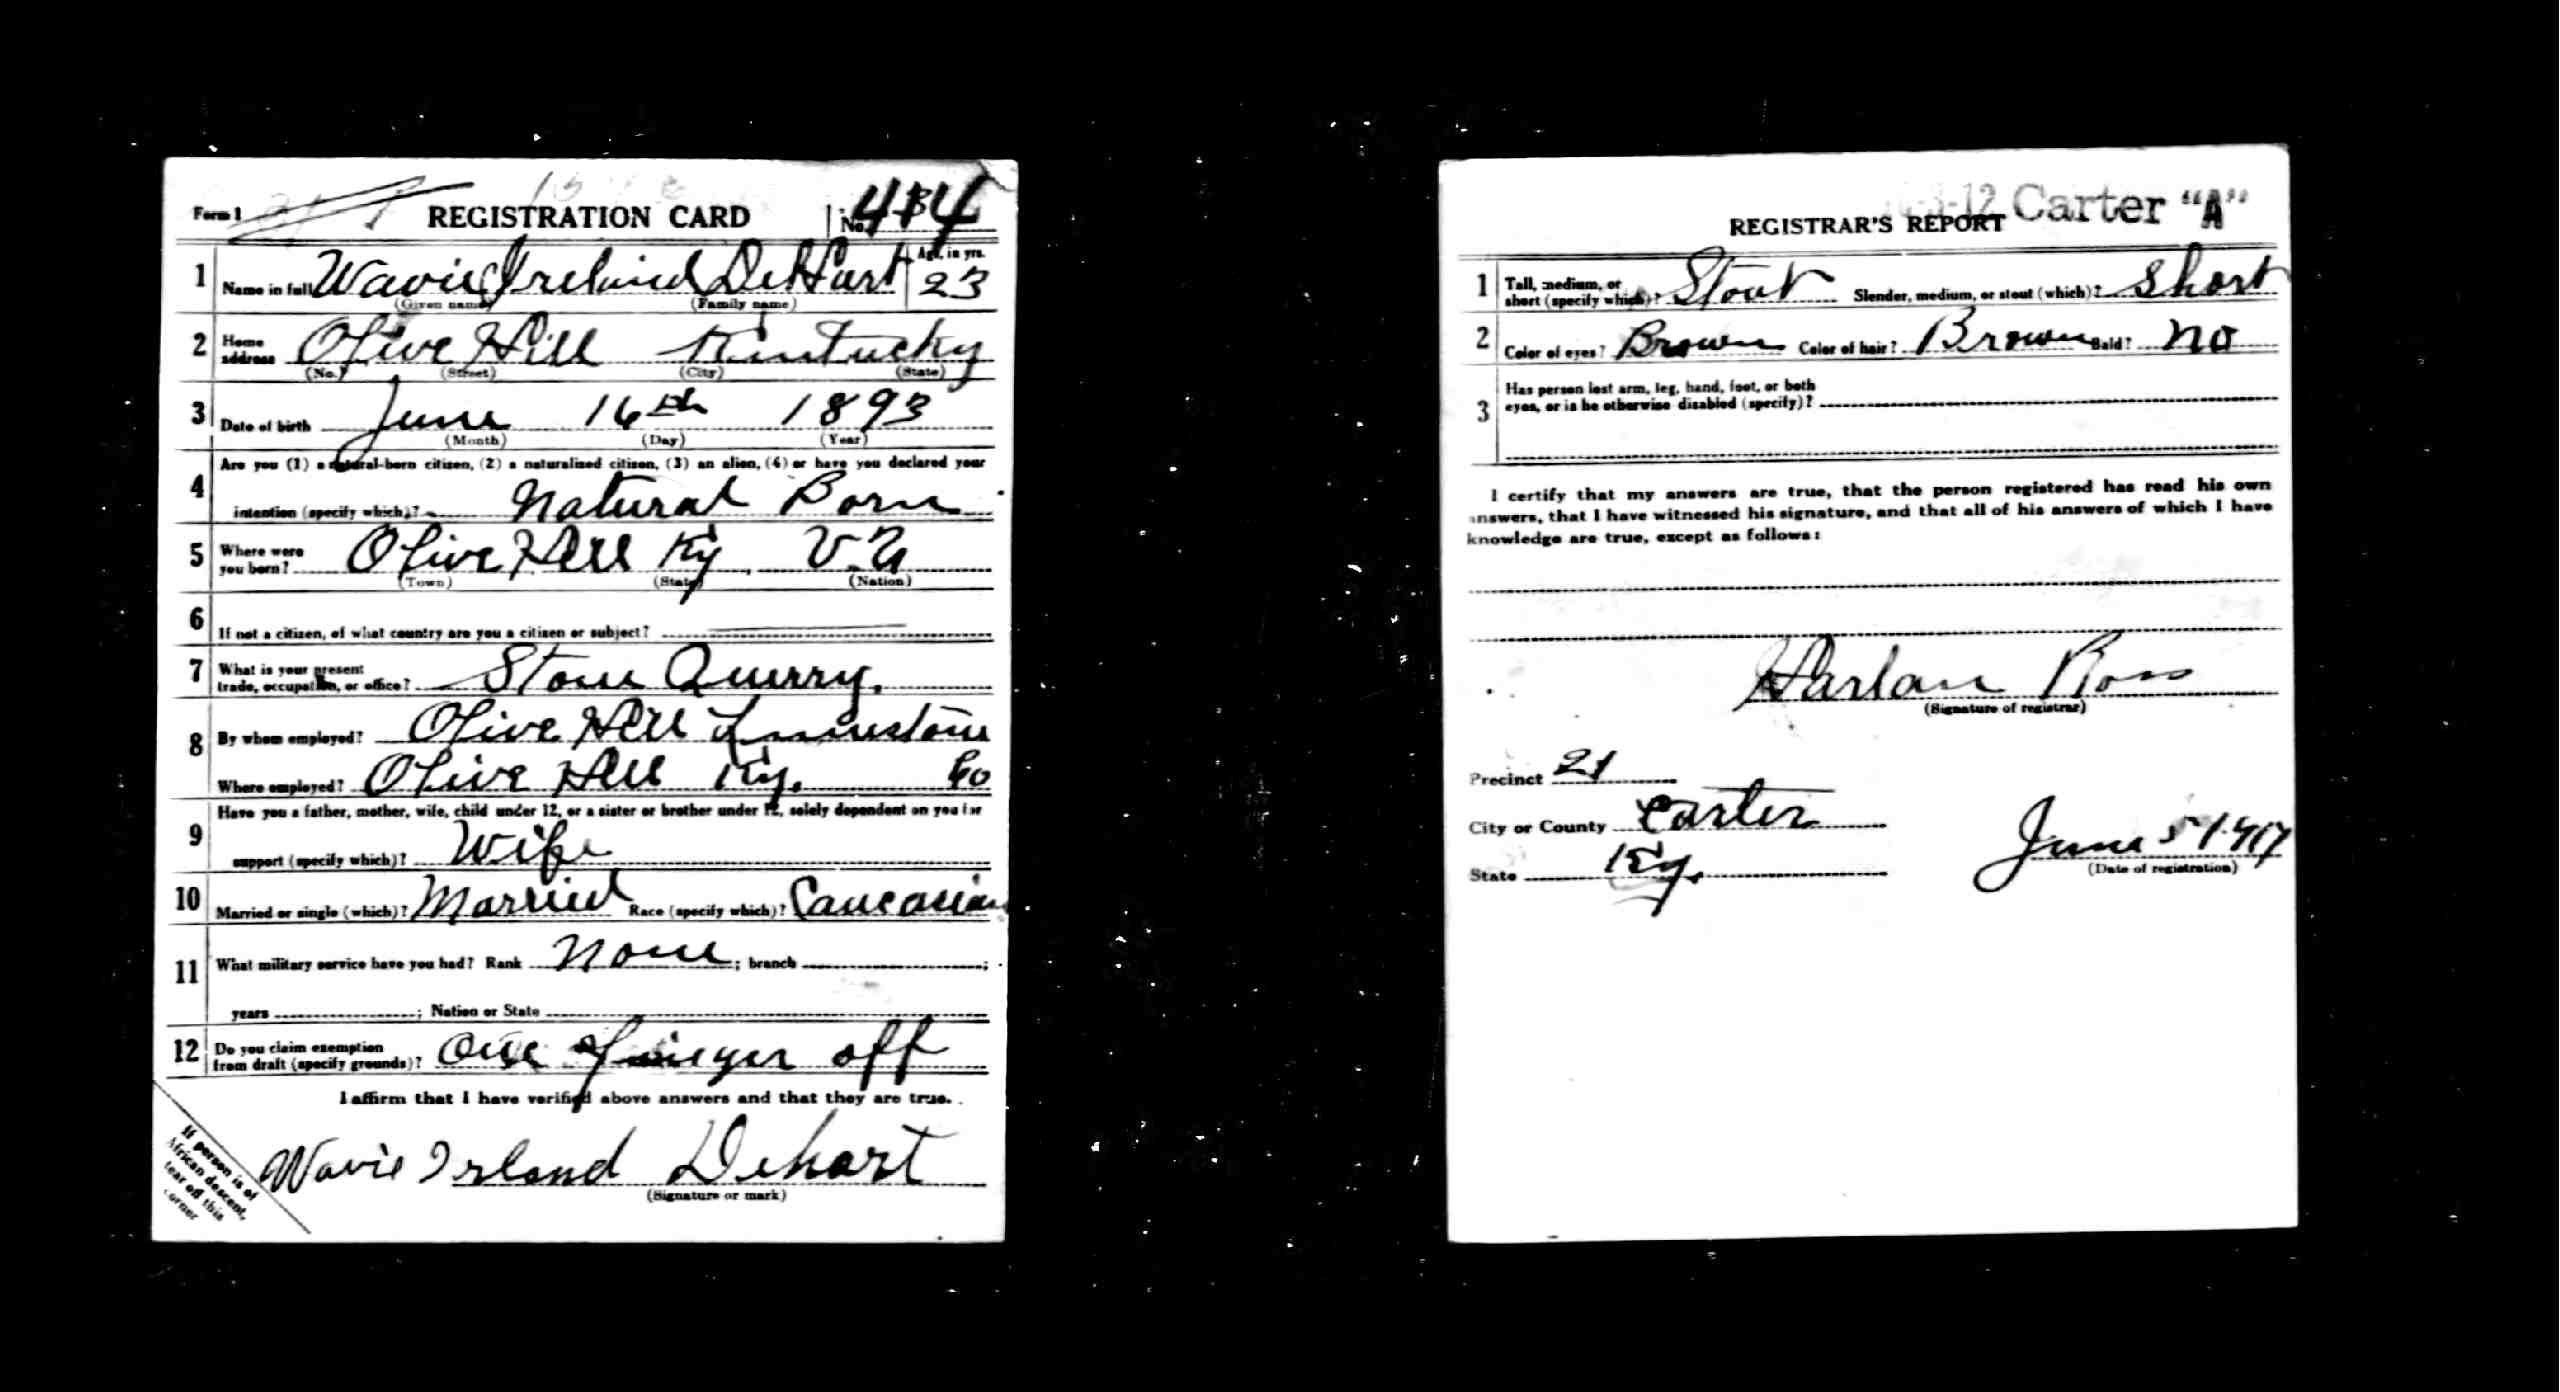 Form 1 REGISTRATION CARD No. 414
1 Name in full Wavie Ireland DeHart Age, in yrs. 23
(Given name) (Family name)
2 Home address Olive Hill Kintucky
(No.) (Street) (City) (State)
3 Date of birth June 16th 1893
(Month) (Day) (Year)
4 Are you (1) a natural-born citizen, (2) a naturalized citizen, (3) an alien, (4) or have you declared your
intention (specify which)? Natural Born
5 Where were you born? Olive Hill Ky. U.S.
(Town) (State) (Nation)
6 If not a citizen, of what country are you a citizen or subject?
7 What is your present
trade, occupation, or office? Stone Querry.
8 By whom employed? Olive Hill Limestone
Where employed? Olive Hill Ky. Co
9 Have you a father, mother, wife, child under 12, or a sister or brother under 12, solely dependent on you for
support (specify which)? Wife
10 Married or single (which)? Married Race (specify which)? Caucasian
11 What military service have you had? Rank None ; branch ;
years ; Nation or State
12 Do you claim exemption
from draft (specify grounds)? One finger off
I affirm that I have verified above answers and that they are true.
Wavie Irland Dehart
(Signature or mark)
If person is of
African descent,
tear off this
corner
Carter "A"
REGISTRAR'S REPORT
1 Tall, medium, or
short (specify which)? Stout Slender, medium, or stout (which)? Short
2 Color of eyes? Brown Color of hair? Brown Bald? No
3 Has person lost arm, leg, hand, foot, or both
eyes, or is he otherwise disabled (specify)?
I certify that my answers are true, that the person registered has read his own
answers, that I have witnessed his signature, and that all of his answers of which I have
knowledge are true, except as follows:
Harlan Ross
(Signature of registrar)
Precinct 21
City or County Carter
State Ky.
June 5 1917
(Date of registration)